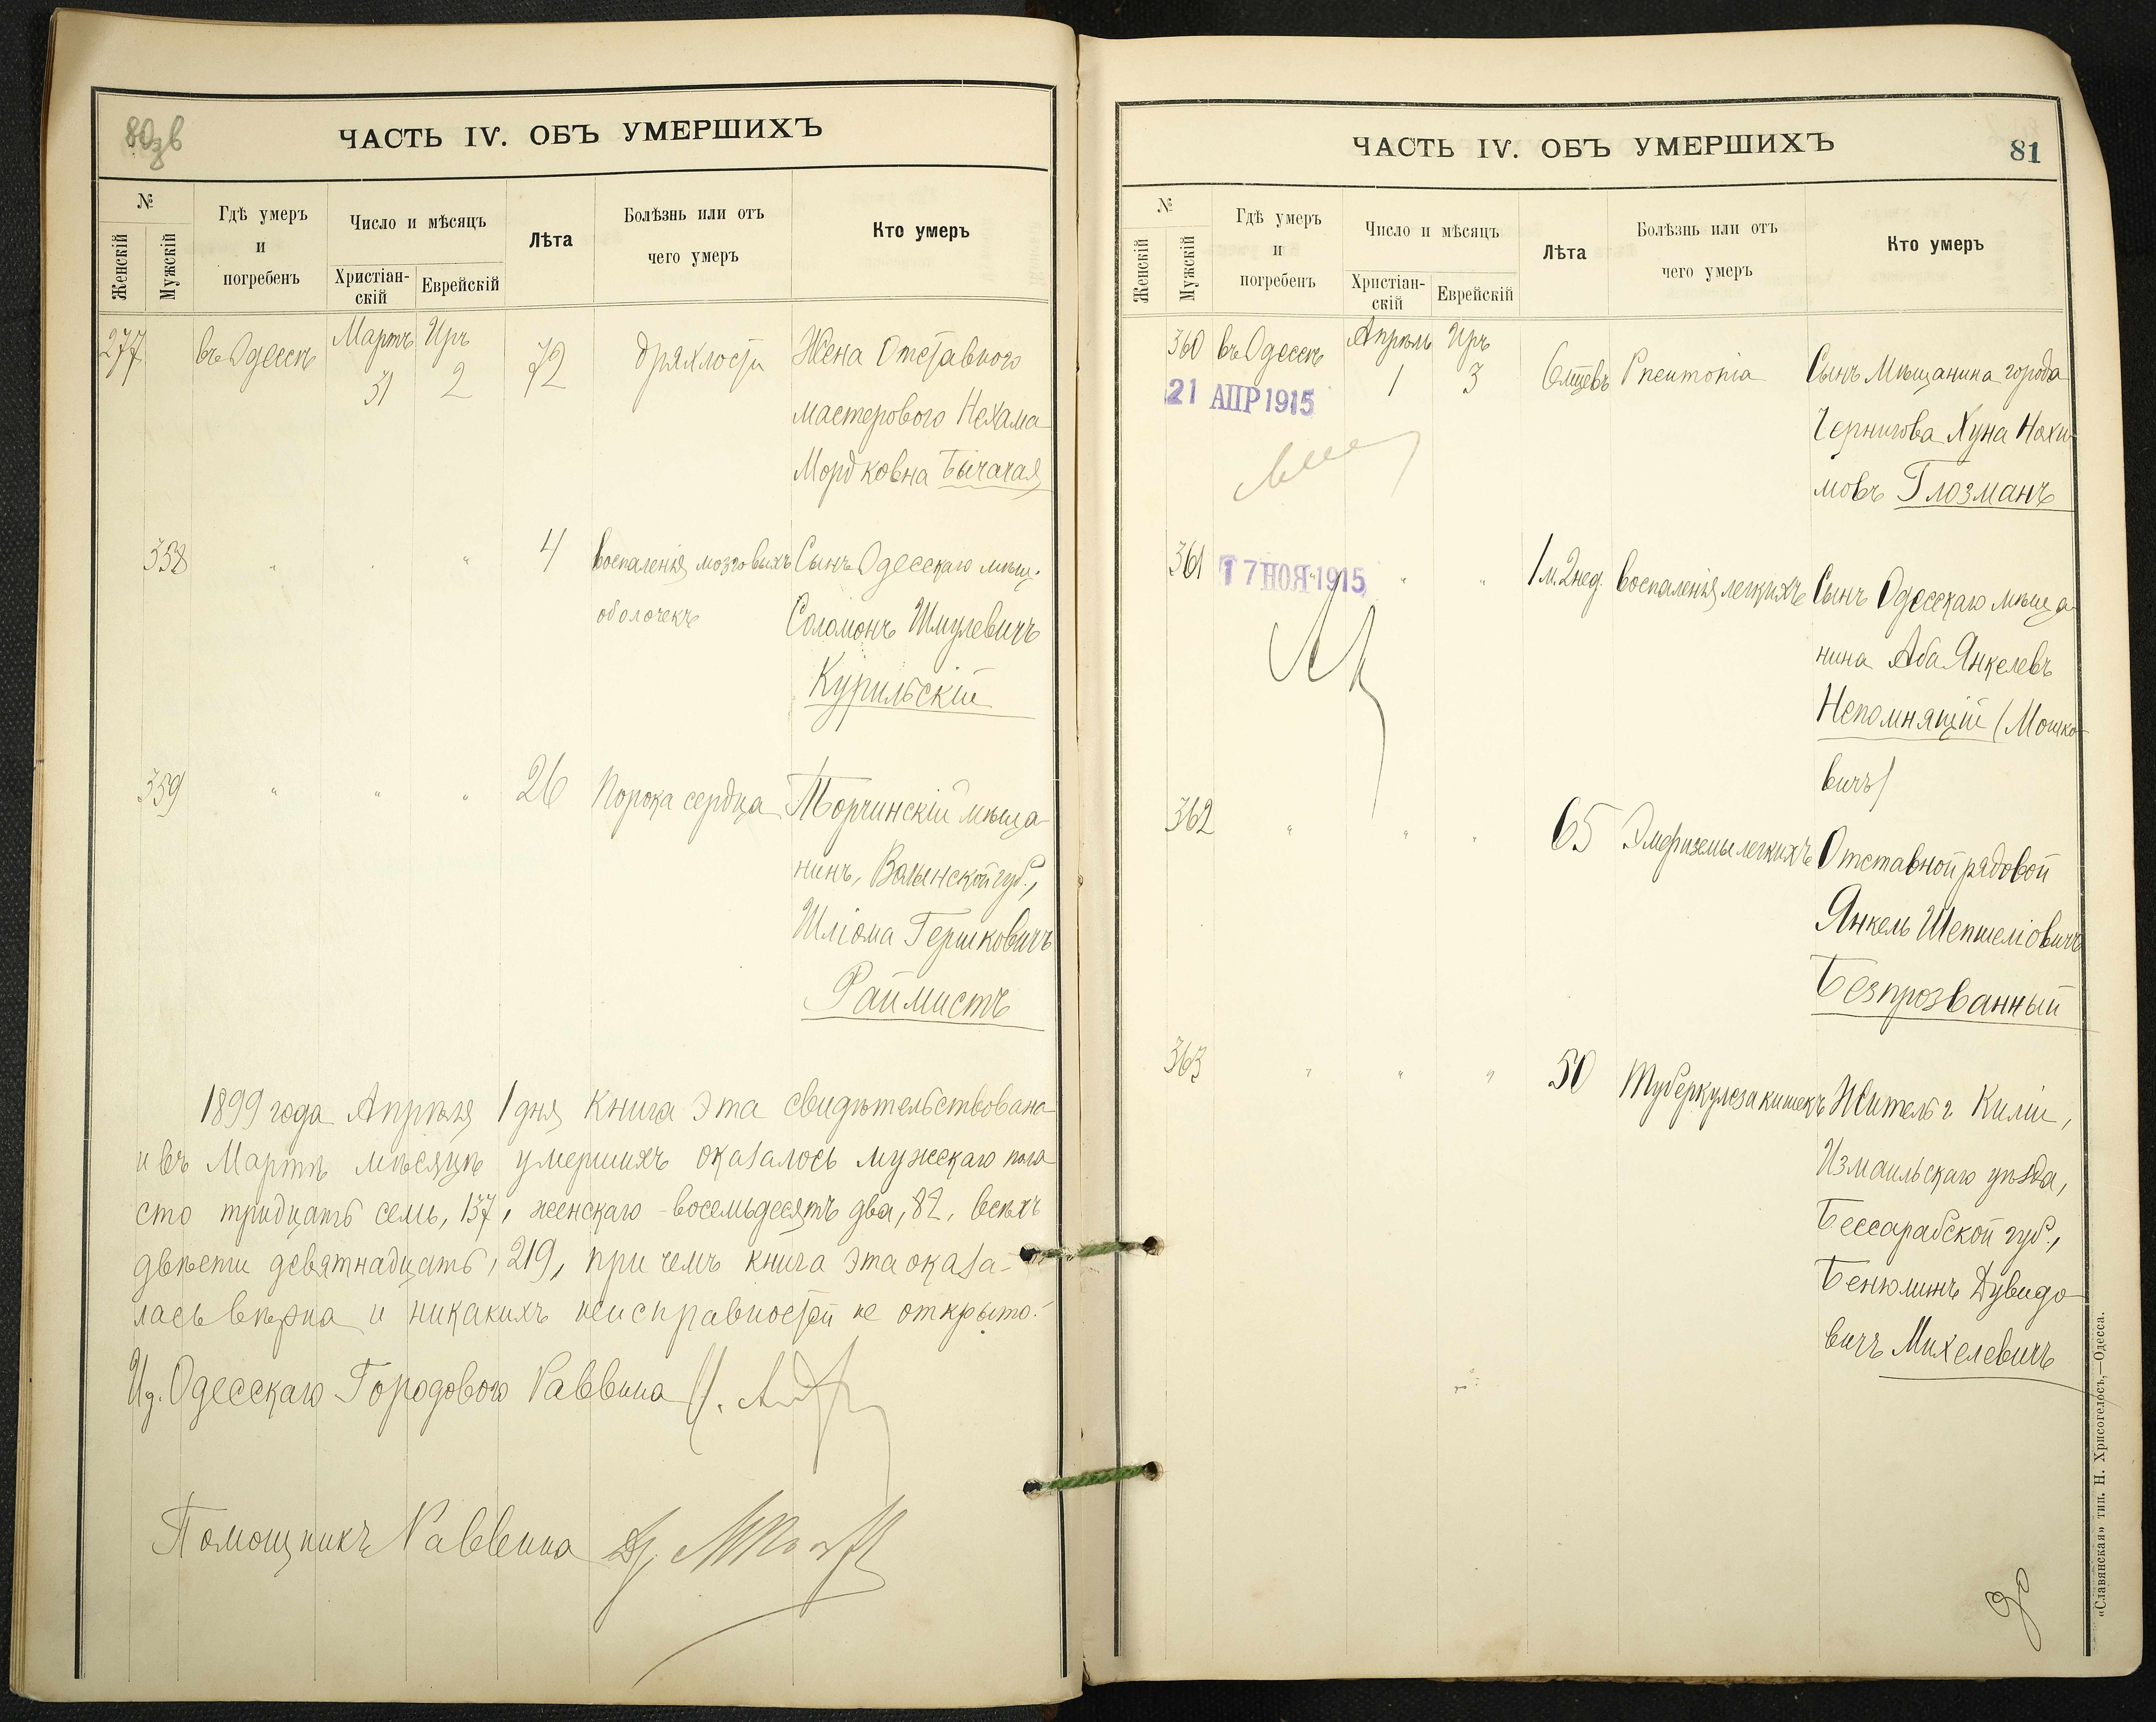 80зв
ЧАСТЬ IV. ОБЪ УМЕРШИХЪ
№
Женскій
Мужскій
Гдѣ умеръ
и
погребенъ
Число и мѣсяцъ
Христіан-
скій
Еврейскій
Лѣта
Болѣзнь или отъ
чего умеръ
Кто умеръ
277
въ Одессѣ
Мартъ
31
Иръ
2
72
дряхлости
Жена Отставного
мастерового Нехама
Мордковна Бычачая
358
"
"
"
4
воспаленія мозговыхъ
оболочекъ
Сынъ Одесскаго мѣщ.
Соломонъ Шмулевичъ
Курильскій
359
"
"
"
26
Порока сердца
Торчинскій мѣща-
нинъ, Волынской губ.,
Шліома Гершковичъ
Раймистъ
1899 года Апрѣля 1 дня Книга эта свидѣтельствована
и въ Мартѣ мѣсяцѣ умершихъ оказалось мужескаго пола
сто тридцать семь, 137, женскаго - восемьдесятъ два, 82, всѣхъ
двѣсти девятнадцать, 219, при чемъ книга эта оказа-
лась вѣрна и никакихъ неисправностей не открыто.-
Ид. Одесскаго Городового Раввина
Помощникъ Раввина
ЧАСТЬ IV. ОБЪ УМЕРШИХЪ
81
№
Женскій
Мужскій
Гдѣ умеръ
и
погребенъ
Число и мѣсяцъ
Христіан-
скій
Еврейскій
Лѣта
Болѣзнь или отъ
чего умеръ
Кто умеръ
360
въ Одессѣ
Апрѣль
1
Иръ
3
6 мцевъ
Pneumonia
Сынъ Мѣщанина города
Чернигова Хуна Нохи-
мовъ Глозманъ
21 АПР 1915
361
17 НОЯ 1915
"
"
"
1 м. 2 нед.
воспаленія легкихъ
Сынъ Одесскаго мѣща-
нина Аба Янкелевъ
Непомнящій (Мошко-
вичъ)
362
"
"
"
65
Эмфиземы легкихъ
Отставной рядовой
Янкель Шепшеліовичъ
Безпрозванный
363
"
"
"
50
Туберкулеза кишекъ
Житель г. Киліи,
Измаильскаго уѣзда,
Бессарабской губ.,
Беньюминъ Дувидо-
вичъ Михелевичъ
«Славянская» тип. Н. Хрисогелосъ,—Одесса.